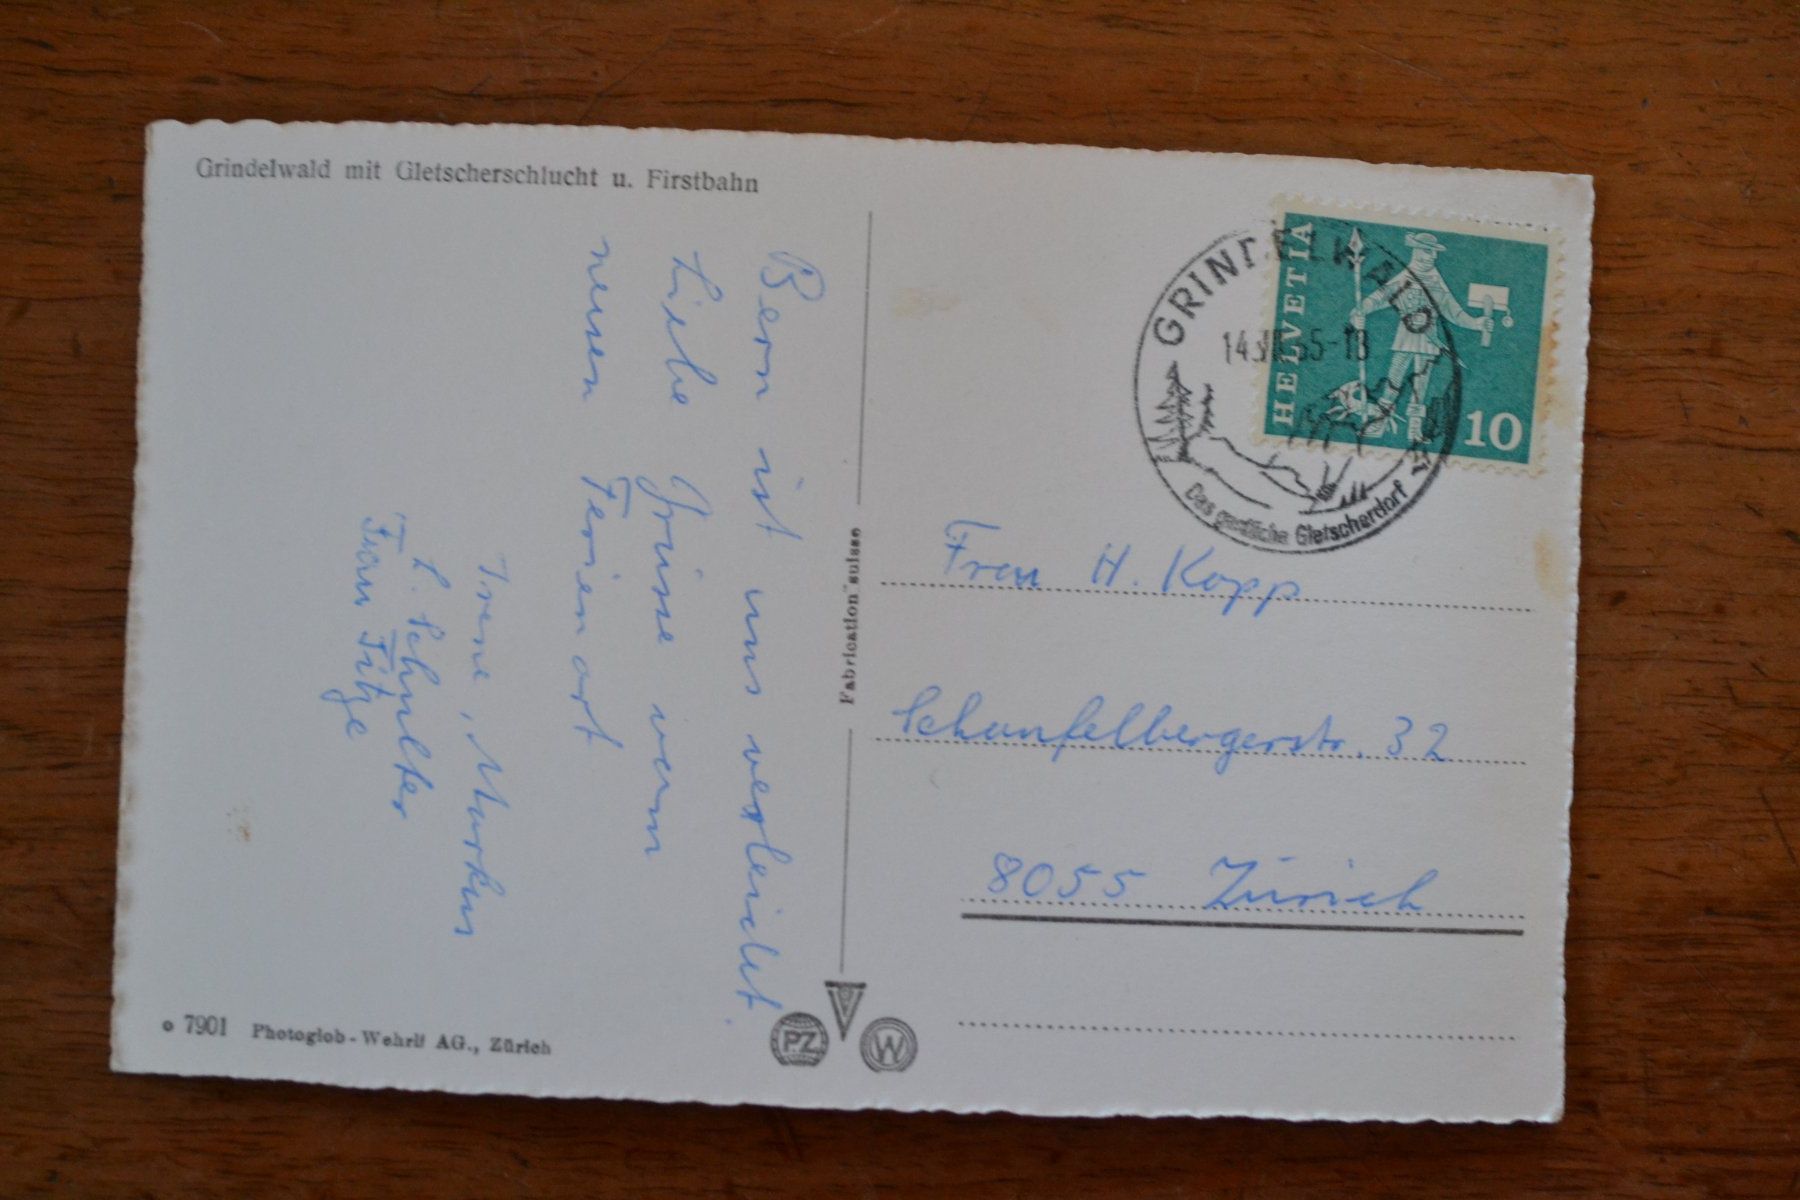 Grindelwald mit Gletscherschlucht u. Firstbahn
Bern ist uns verleidet.
Liebe Grüsse vom
neuen Ferienort
Irene, Markus
L. Schmelter
Frau Fitze
Fabrication suisse
o 7901 Photoglob-Wehrli AG., Zürich
PZ
W
GRINDELWALD
-18
Das gastliche Gletscherdorf
HELVETIA
10
Frau H. Kopp
Schaufelbergerstr. 32
8055 Zürich